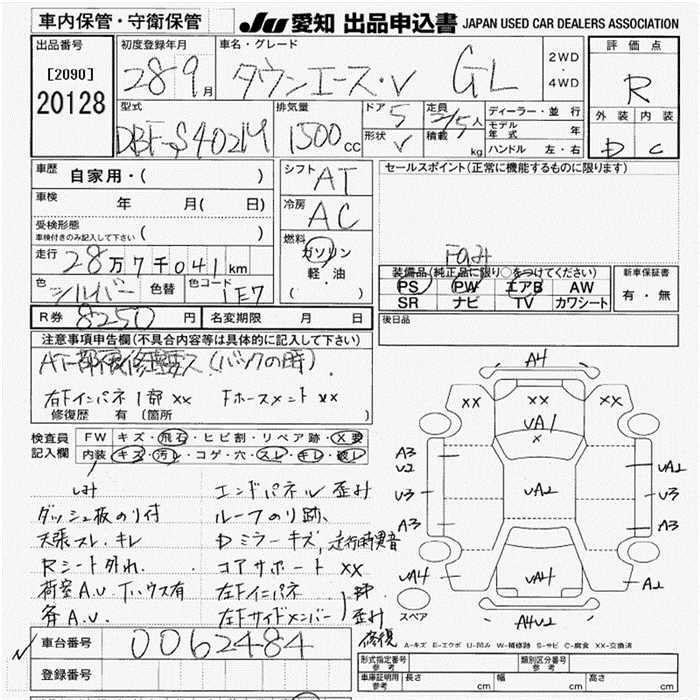 車内保管・守衛保管
JU 愛知 出品申込書 JAPAN USED CAR DEALERS ASSOCIATION
出品番号
[2090]
20128
初度登録年月
28 9月
車名・グレード
タウンエース・V GL
2WD
・
4WD
評価点
R
外装 内装
D C
型式
DBF-S402M
排気量
1500cc
ドア
5
形状
V
定員
2/5人
積載
kg
ディーラー・並行
モデル年式 年
ハンドル 左・右
車歴
自家用・( )
車検
年 月( 日)
受検形態
車検付きのみ記入して下さい ( )
走行
28万7千041km
色
シルバー
色替
色コード
1E7
シフト
AT
冷房
AC
燃料
ガソリン
軽・油
( )
セールスポイント(正常に機能するものに限ります)
装備品(純正品に限り○をつけてください)
PS PW エアB AW
SR ナビ TV カワシート
新車保証書
有・無
R券 8250円
名変期限 月 日
後日品
注意事項申告欄(不具合内容等は具体的に記入して下さい)
(バックの時)
右Fインパネ1部xx Fホースメントxx
修復歴 有(箇所 )
検査員
記入欄
FW キズ・飛石・ヒビ割・リペア跡・X要
内装 キズ・汚レ・コゲ・穴・スレ・キレ・破レ
しみ エンドパネル歪み
ダッシュ板のり付 ルーフのり跡、
天張スレ、キレ Dミラーキズ、走行時異音
Rシート外れ、 コアサポートxx
荷室A.U.Tハウス有 左Fインパネ
各A.U. 左Fサイドメンバー 歪み
A4
xx xx xx
UA1
x
A3
U2
UA2
U3 UA2 U3
A3 A3
UA4 UA4 A2
A4U2
スペア
車台番号
0062484
登録番号
修復
A-キズ E-エクボ U-凹み W-補修跡 S-サビ C-腐食 XX-交換済
形式指定番号
参考
類別区分番号
参考
車庫証明用
参考
長さ cm 幅 cm 高さ cm